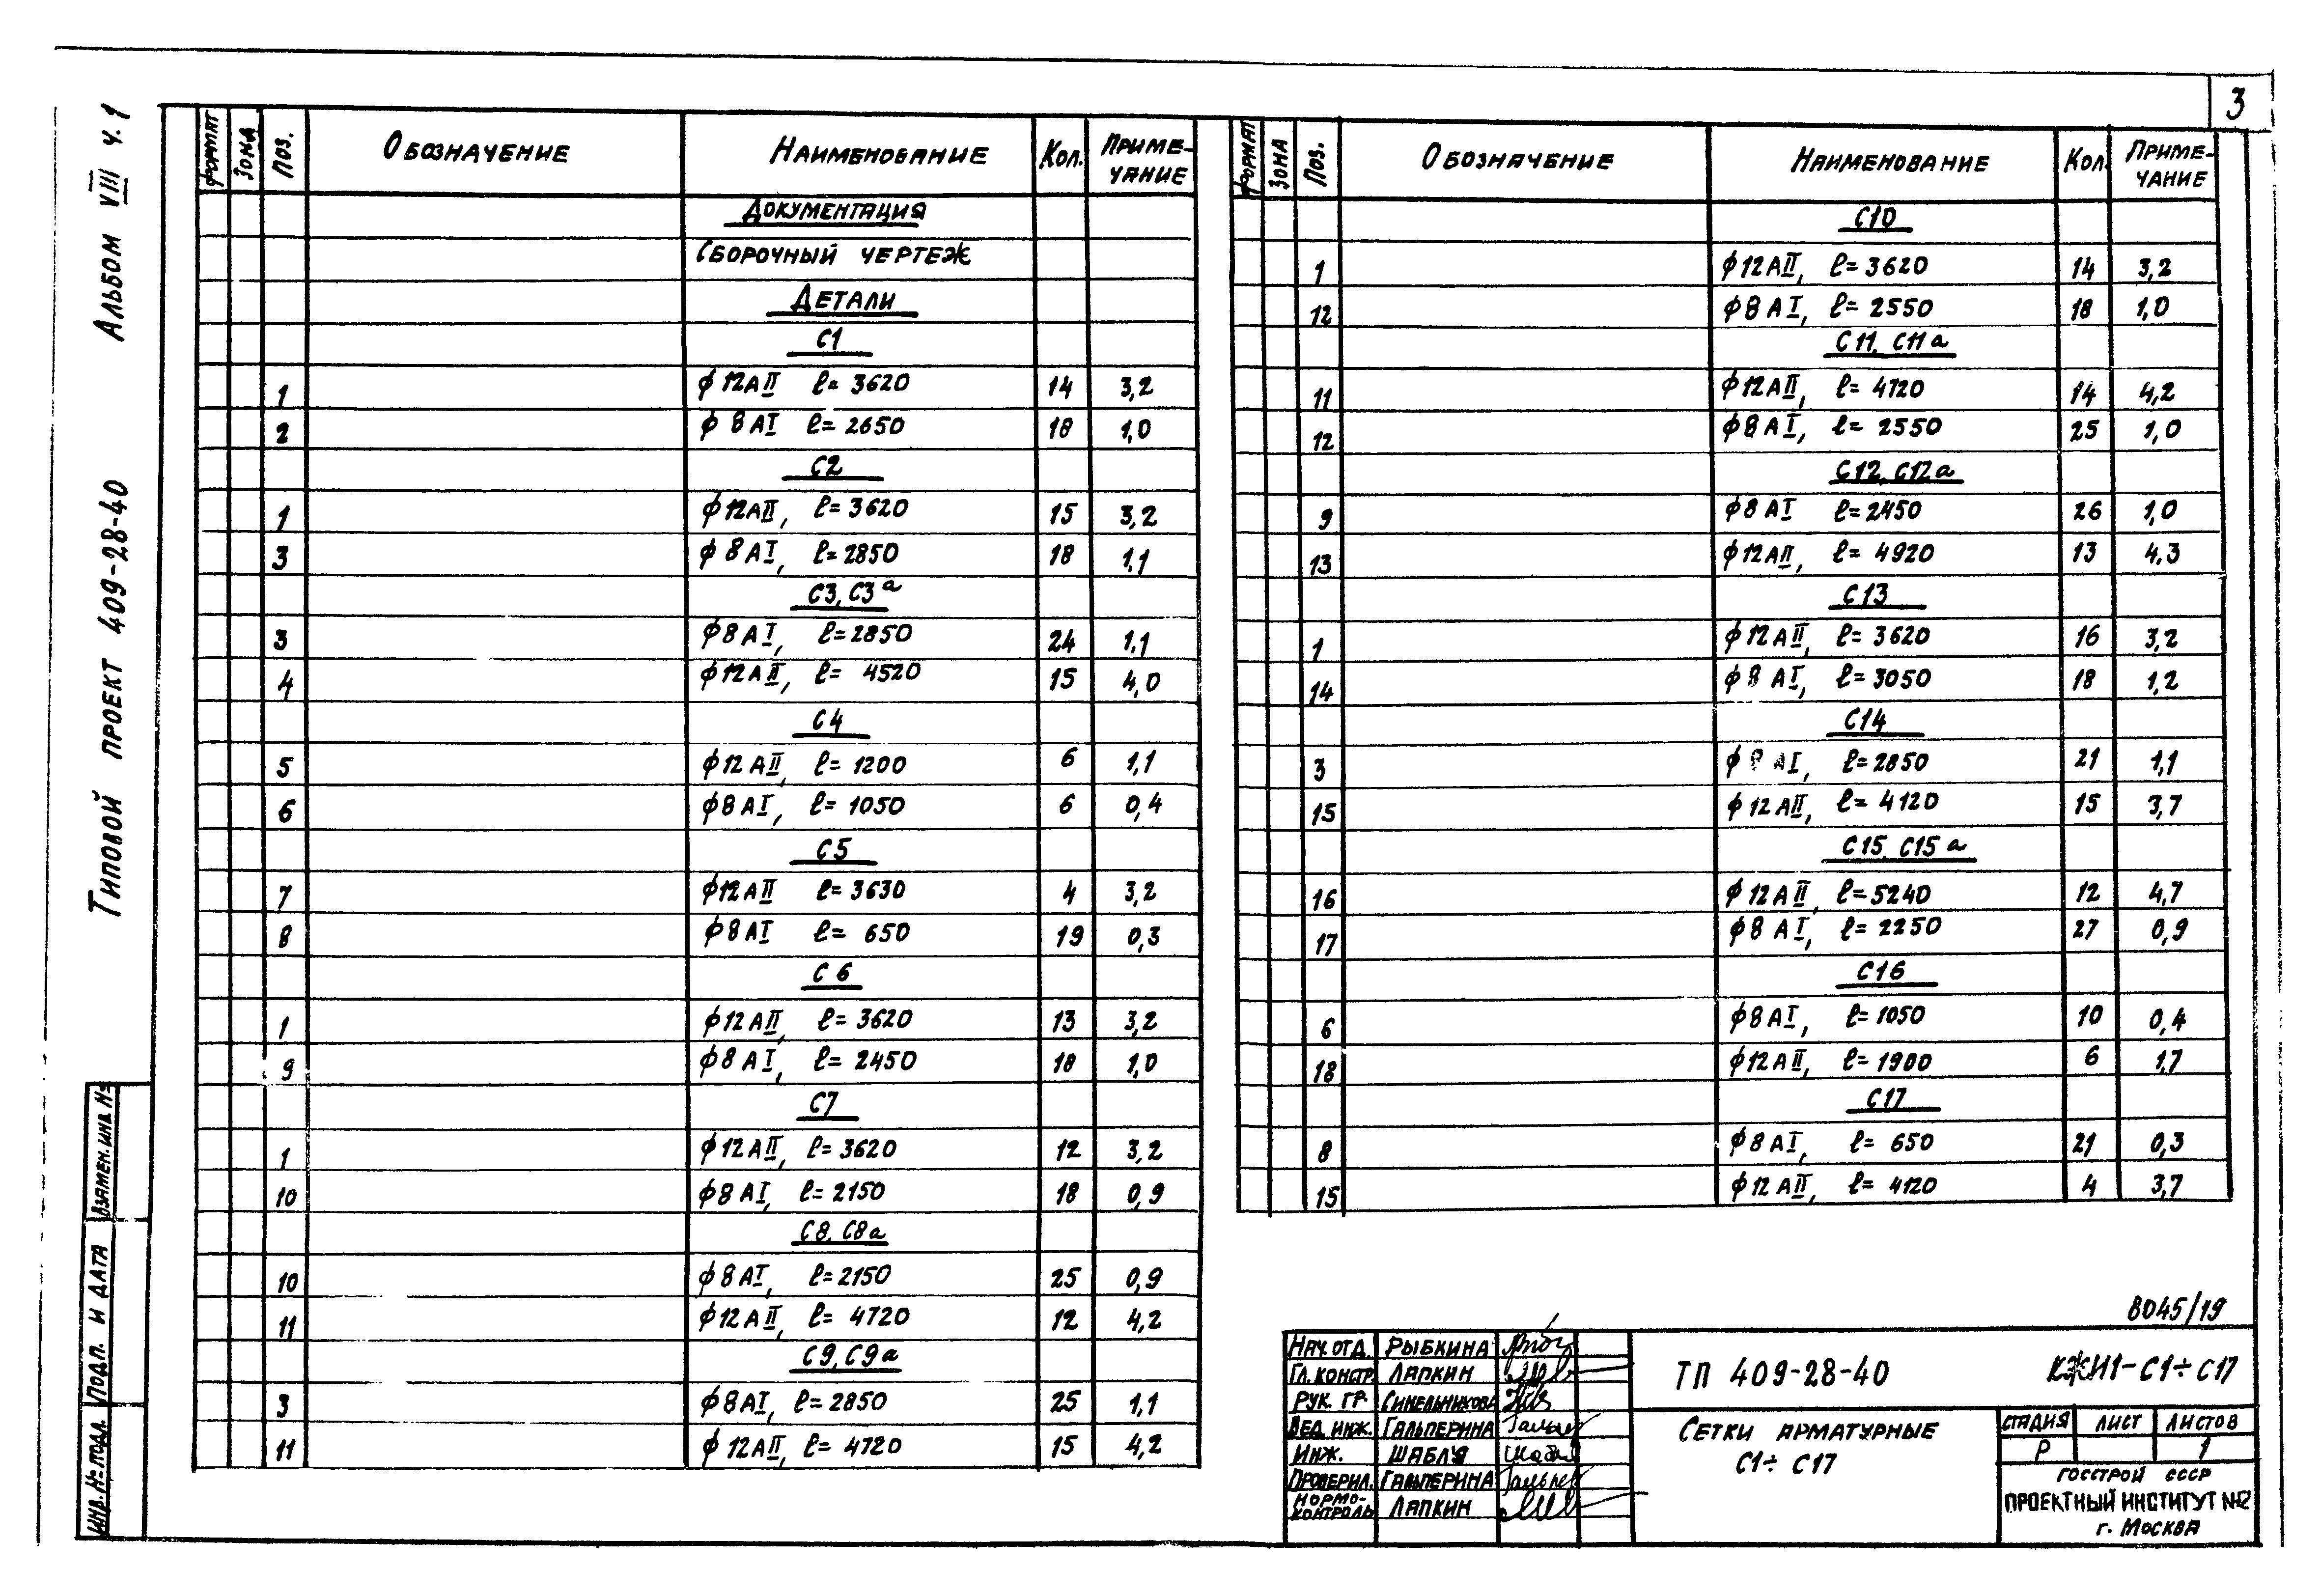 3
Альбом VIII ч. 1
Типовой проект 409-28-40
Взамен. инв. №
Подп. и дата
Инв. № подл.
Формат Зона Поз. Обозначение Наименование Кол. Приме-
чание
Документация
Сборочный чертеж
Детали
С1
1 ф12АII l=3620 14 3,2
2 ф8АI l=2650 18 1,0
С2
1 ф12АII, l=3620 15 3,2
3 ф8АI, l=2850 18 1,1
С3, С3а
3 ф8АI, l=2850 24 1,1
4 ф12АII, l=4520 15 4,0
С4
5 ф12АII, l=1200 6 1,1
6 ф8АI, l=1050 6 0,4
С5
7 ф12АII l=3630 4 3,2
8 ф8АI l=650 19 0,3
С6
1 ф12АII, l=3620 13 3,2
9 ф8АI, l=2450 18 1,0
С7
1 ф12АII, l=3620 12 3,2
10 ф8АI, l=2150 18 0,9
С8, С8а
10 ф8АI, l=2150 25 0,9
11 ф12АII, l=4720 12 4,2
С9, С9а
3 ф8АI, l=2850 25 1,1
11 ф12АII, l=4720 15 4,2
Формат Зона Поз. Обозначение Наименование Кол. Приме-
чание
С10
1 ф12АII, l=3620 14 3,2
12 ф8АI, l=2550 18 1,0
С11, С11а
11 ф12АII, l=4720 14 4,2
12 ф8АI, l=2550 25 1,0
С12, С12а
9 ф8АI l=2450 26 1,0
13 ф12АII, l=4920 13 4,3
С13
1 ф12АII, l=3620 16 3,2
14 ф8АI, l=3050 18 1,2
С14
3 ф8АI, l=2850 21 1,1
15 ф12АII, l=4120 15 3,7
С15, С15а
16 ф12АII, l=5240 12 4,7
17 ф8АI, l=2250 27 0,9
С16
6 ф8АI, l=1050 10 0,4
18 ф12АII, l=1900 6 1,7
С17
8 ф8АI, l=650 21 0,3
15 ф12АII, l=4120 4 3,7
8045/19
Нач. отд. Рыбкина
Гл. констр. Лапкин
Рук. гр. Синельникова
Вед. инж. Гальперина
Инж. Шабля
Проверил. Гальперина
Нормо-
контроль Лапкин
ТП 409-28-40 КЖИ1-С1÷С17
Сетки арматурные
С1÷С17
Стадия Лист Листов
Р 1
Госстрой СССР
Проектный институт №2
г. Москва